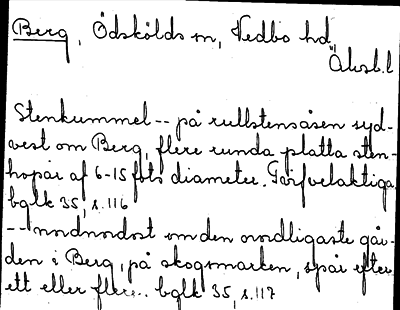 Berg, Ödskölds sn, Vedbo hd
Älvsb.l
Stenkummel -- på rullstensåsen syd-
vest om Berg, flere runda platta sten-
hopar af 6-15 fots diameter.
bglk 35, s.116
-- nordnordost om den nordligaste går-
den i Berg, på skogsmarken, spår efter
ett eller flere.. bglk 35, s.117